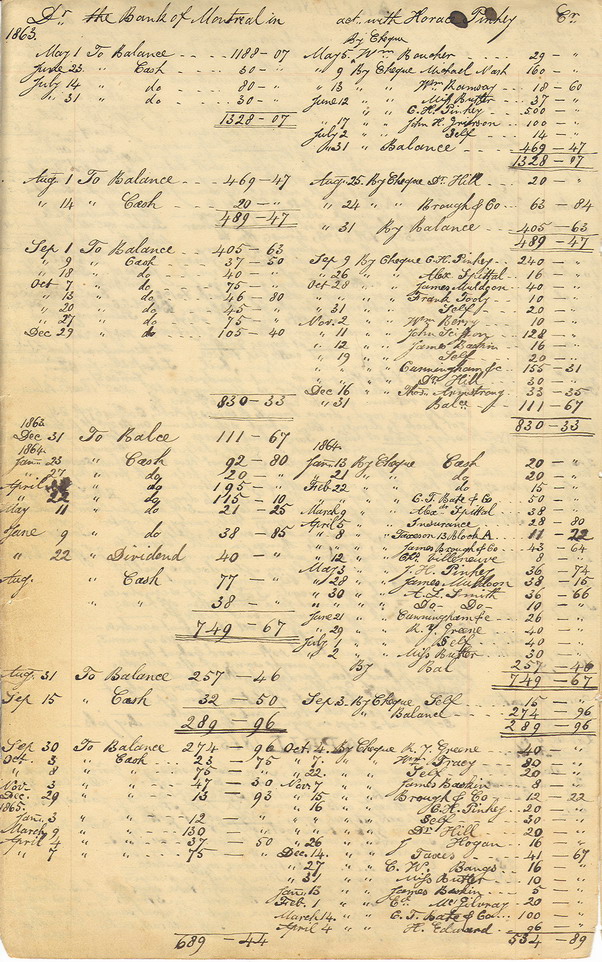 Dr. the Bank of Montreal in acct. with Horace Pinhey Cr.
1863. By Cheque
May 1 To Balance 1188-07 May 5 " Wm Boucher 29 - "
June 23 " Cash 30 - " " 9 By Cheque Michael Nash 160 - "
July 14 " do 80 - " " 13 " " Wm Ramsay 18 - 60
" 31 " do 30 - " June 12 " " Miss Butler 37 - "
" " C. H. Pinhey 500 - "
1328-07 " 17 " " John H. Grierson 100 - "
July 2 " " Self 14 - "
" 31 " Balance 469-47
1328-07
Aug. 1 To Balance 469-47 Aug. 25. By Cheque Dr. Hill 20 - "
" 14 " Cash 20 - " " 24 " " Brough & Co 63 - 84
489-47 " 31 By Balance 405-63
489-47
Sep 1 To Balance 405-63
" 9 " Cash 37-50 Sep 9 By Cheque C. H. Pinhey 240 - "
" 18 " do 40 - " " 26 " " Alex Spittal 16 - "
Oct 7 " do 75 - " Oct 28 " " James Muldoon 40 - "
" 13 " do 46-80 " " Frank Tooly 10 - "
" 20 " do 45 - " " 31 " " Self 20 - "
" 27 " do 75 - " Nov. 2 " " Wm Berry 10 - "
Dec 29 " do 105-40 " 11 " " John 128 - "
" 12 " " James Baskin 16 - "
" 19 " " Self 20 - "
" " " Cunningham &c 155-31
" " " Dr. Hill 30 - "
Dec 16 " " Thos. Armstrong 33-35
830-33 " 31 Balce 111-67
830-33
1863.
Dec 31 To Balce 111-67 1864.
1864.
Jany. 23 " Cash 92-80 Jany. 13 By Cheque Cash 20 - "
" 27 " do 20 - " " 21 " " do 20 - "
April " do 195 - " Feb. 22 " " do 15 - "
" 22 " do 115-10 " " C. T. Bate & Co 50 - "
May 11 " do 21-25 March 9 " " Alex Spittal 38 - "
April 5 " " Insurance 28-80
June 9 " do 38-85 " 8 " " Taxes on 13 Block A 11-22
" " James Brough & Co 43-64
" 22 " Dividend 40 - " " 12 " " Villeneuve 8 - "
May 3 " " J. H. Pinhey 36-74
Aug. " Cash 77 - " " 28 " " James Muldoon 38-15
" 30 " " A. L. Smith 36-66
" " 38 - " " " Do - Do 10 - "
749-67 June 21 " " Cunningham &c 26 - "
" 29 " " R. Y. Greene 40 - "
July 1 " " Self 40 - "
" 2 " " Miss Butler 30 - "
By Bal 257-46
Aug. 31 To Balance 257-46 749-67
Sep 15 " Cash 32-50 Sep 3. By Cheque Self 15 - "
289-96 " Balance 274-96
289-96
Sep 30 To Balance 274-96 Oct. 4. By Cheque R. Y. Greene 40 - "
Oct. 3 " Cash 23-75 " 7 " " Wm Tracy 80 - "
" 8 " " 75 - " " 22 " " Self 20 - "
Nov. 3 " " 47-50 Nov 7 " " James Baskin 8 - "
Dec. 29 " " 13-93 " 15 " " Brough & Co 12-22
1865. " 16 " " C. H. Pinhey 20 - "
Jany. 3 " " 12 - " " " Self 30 - "
March 9 " " 130 - " " " Dr Hill 20 - "
April 4 " " 37-50 " 26 " J Hogan 16 - "
" 7 " " 75 - " Dec. 14. " " Taxes 41-67
" 27 " " C. W. Bangs 16 - "
" 31 " " Miss Butler 10 - "
Jany. 13 " " James Baskin 5 - "
Feb. 1 " " McGilvray 20 - "
March 14. " " C. T. Bate & Co 100 - "
April 4 " " H. Edward 96 - "
689-44 534-89